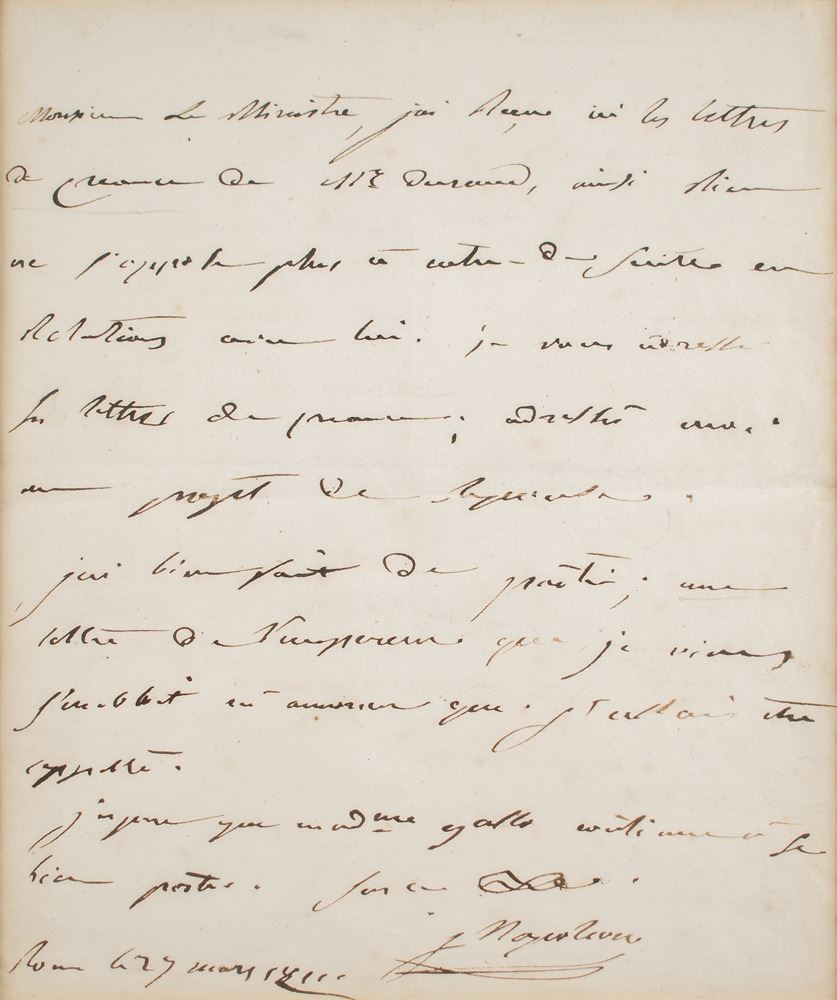 Monsieur Le Ministre, jai Reçu ici les lettres
de creance de Mr Durand, ainsi Rien
ne s'oppose plus à entrer de suite en
Relations avec lui. je vous adresse
ses lettres de creance; adressés moi
un projet de Reponse.
jai bien fait de partir; une
lettre de l'empereur que je viens
était
appellé.
j'espere que madme gallo continue à se
bien porter. sur ce
J Napoleon
Rome le 27 mars